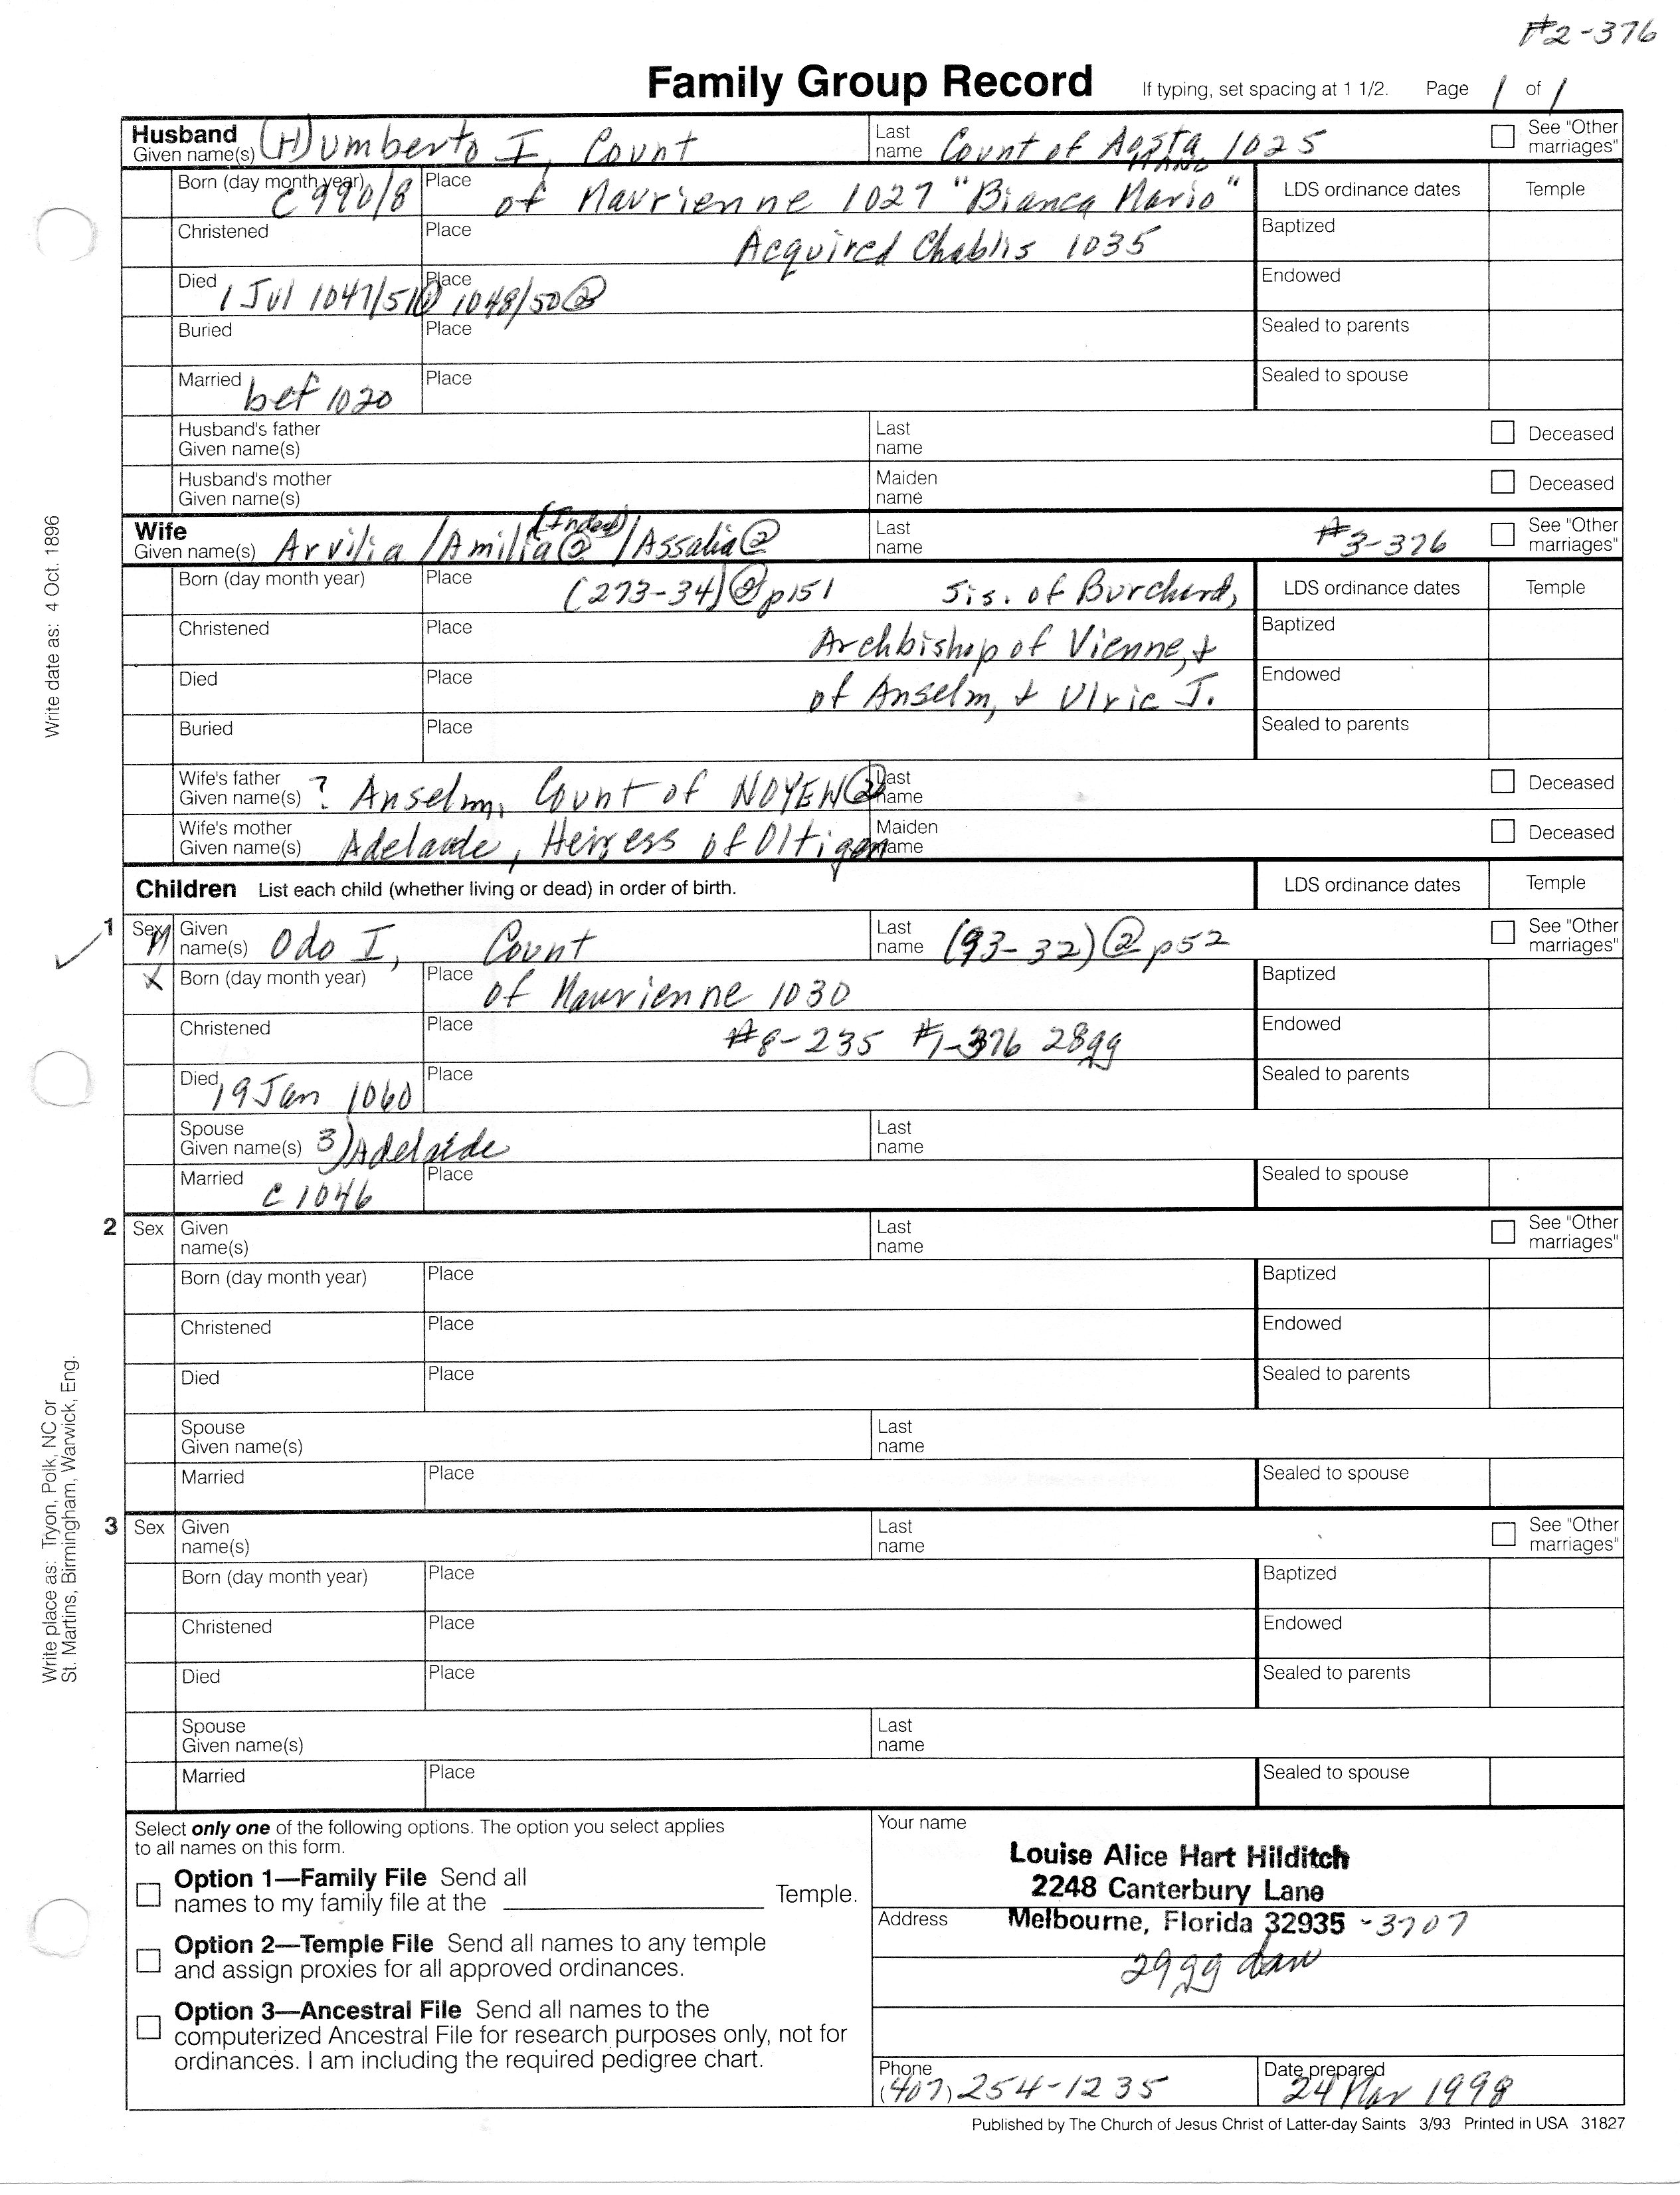 #2-376
Family Group Record If typing, set spacing at 1 1/2. Page 1 of 1
Husband
Given name(s) (H)umberto I, Count Last name Count of Aosta 1025 See "Other marriages"
HAND
Born (day month year) c 990/8 Place of Maurienne 1027 "Bianca Mario" LDS ordinance dates Temple
Christened Place Acquired Chablis 1035 Baptized
Died 1 Jul 1047/51① Place 1048/50② Endowed
Buried Place Sealed to parents
Married bef 1020 Place Sealed to spouse
Husband's father Given name(s) Last name Deceased
Husband's mother Given name(s) Maiden name Deceased
(Index)
Wife
Given name(s) Arvilia /Amilia② /Assalia② Last name #3-376 See "Other marriages"
Born (day month year) Place (273-34)② p151 Sis. of Burchard, LDS ordinance dates Temple
Christened Place Archbishop of Vienne, + Baptized
Died Place of Anselm, + Ulric J. Endowed
Buried Place Sealed to parents
Wife's father Given name(s) ? Anselm, Count of NOYEN② Last name Deceased
Wife's mother Given name(s) Adelaide, Heiress of Oltigen Maiden name Deceased
Children List each child (whether living or dead) in order of birth. LDS ordinance dates Temple
1 Sex M Given name(s) Odo I, Count Last name (93-32)② p52 See "Other marriages"
X Born (day month year) Place of Maurienne 1030 Baptized
Christened Place #8-235 #1-376 28gg Endowed
Died 19 Jan 1060 Place Sealed to parents
Spouse Given name(s) 3) Adelaide Last name
Married c 1046 Place Sealed to spouse
2 Sex Given name(s) Last name See "Other marriages"
Born (day month year) Place Baptized
Christened Place Endowed
Died Place Sealed to parents
Spouse Given name(s) Last name
Married Place Sealed to spouse
3 Sex Given name(s) Last name See "Other marriages"
Born (day month year) Place Baptized
Christened Place Endowed
Died Place Sealed to parents
Spouse Given name(s) Last name
Married Place Sealed to spouse
Select only one of the following options. The option you select applies
to all names on this form.
Option 1—Family File Send all
names to my family file at the Temple.
Option 2—Temple File Send all names to any temple
and assign proxies for all approved ordinances.
Option 3—Ancestral File Send all names to the
computerized Ancestral File for research purposes only, not for
ordinances. I am including the required pedigree chart.
Your name
Louise Alice Hart Hilditch
2248 Canterbury Lane
Address Melbourne, Florida 32935 -3707
29gg dau
Phone (407) 254-1235 Date prepared 24 Mar 1998
Published by The Church of Jesus Christ of Latter-day Saints 3/93 Printed in USA 31827
Write date as: 4 Oct. 1896
Write place as: Tryon, Polk, NC or
St. Martins, Birmingham, Warwick, Eng.